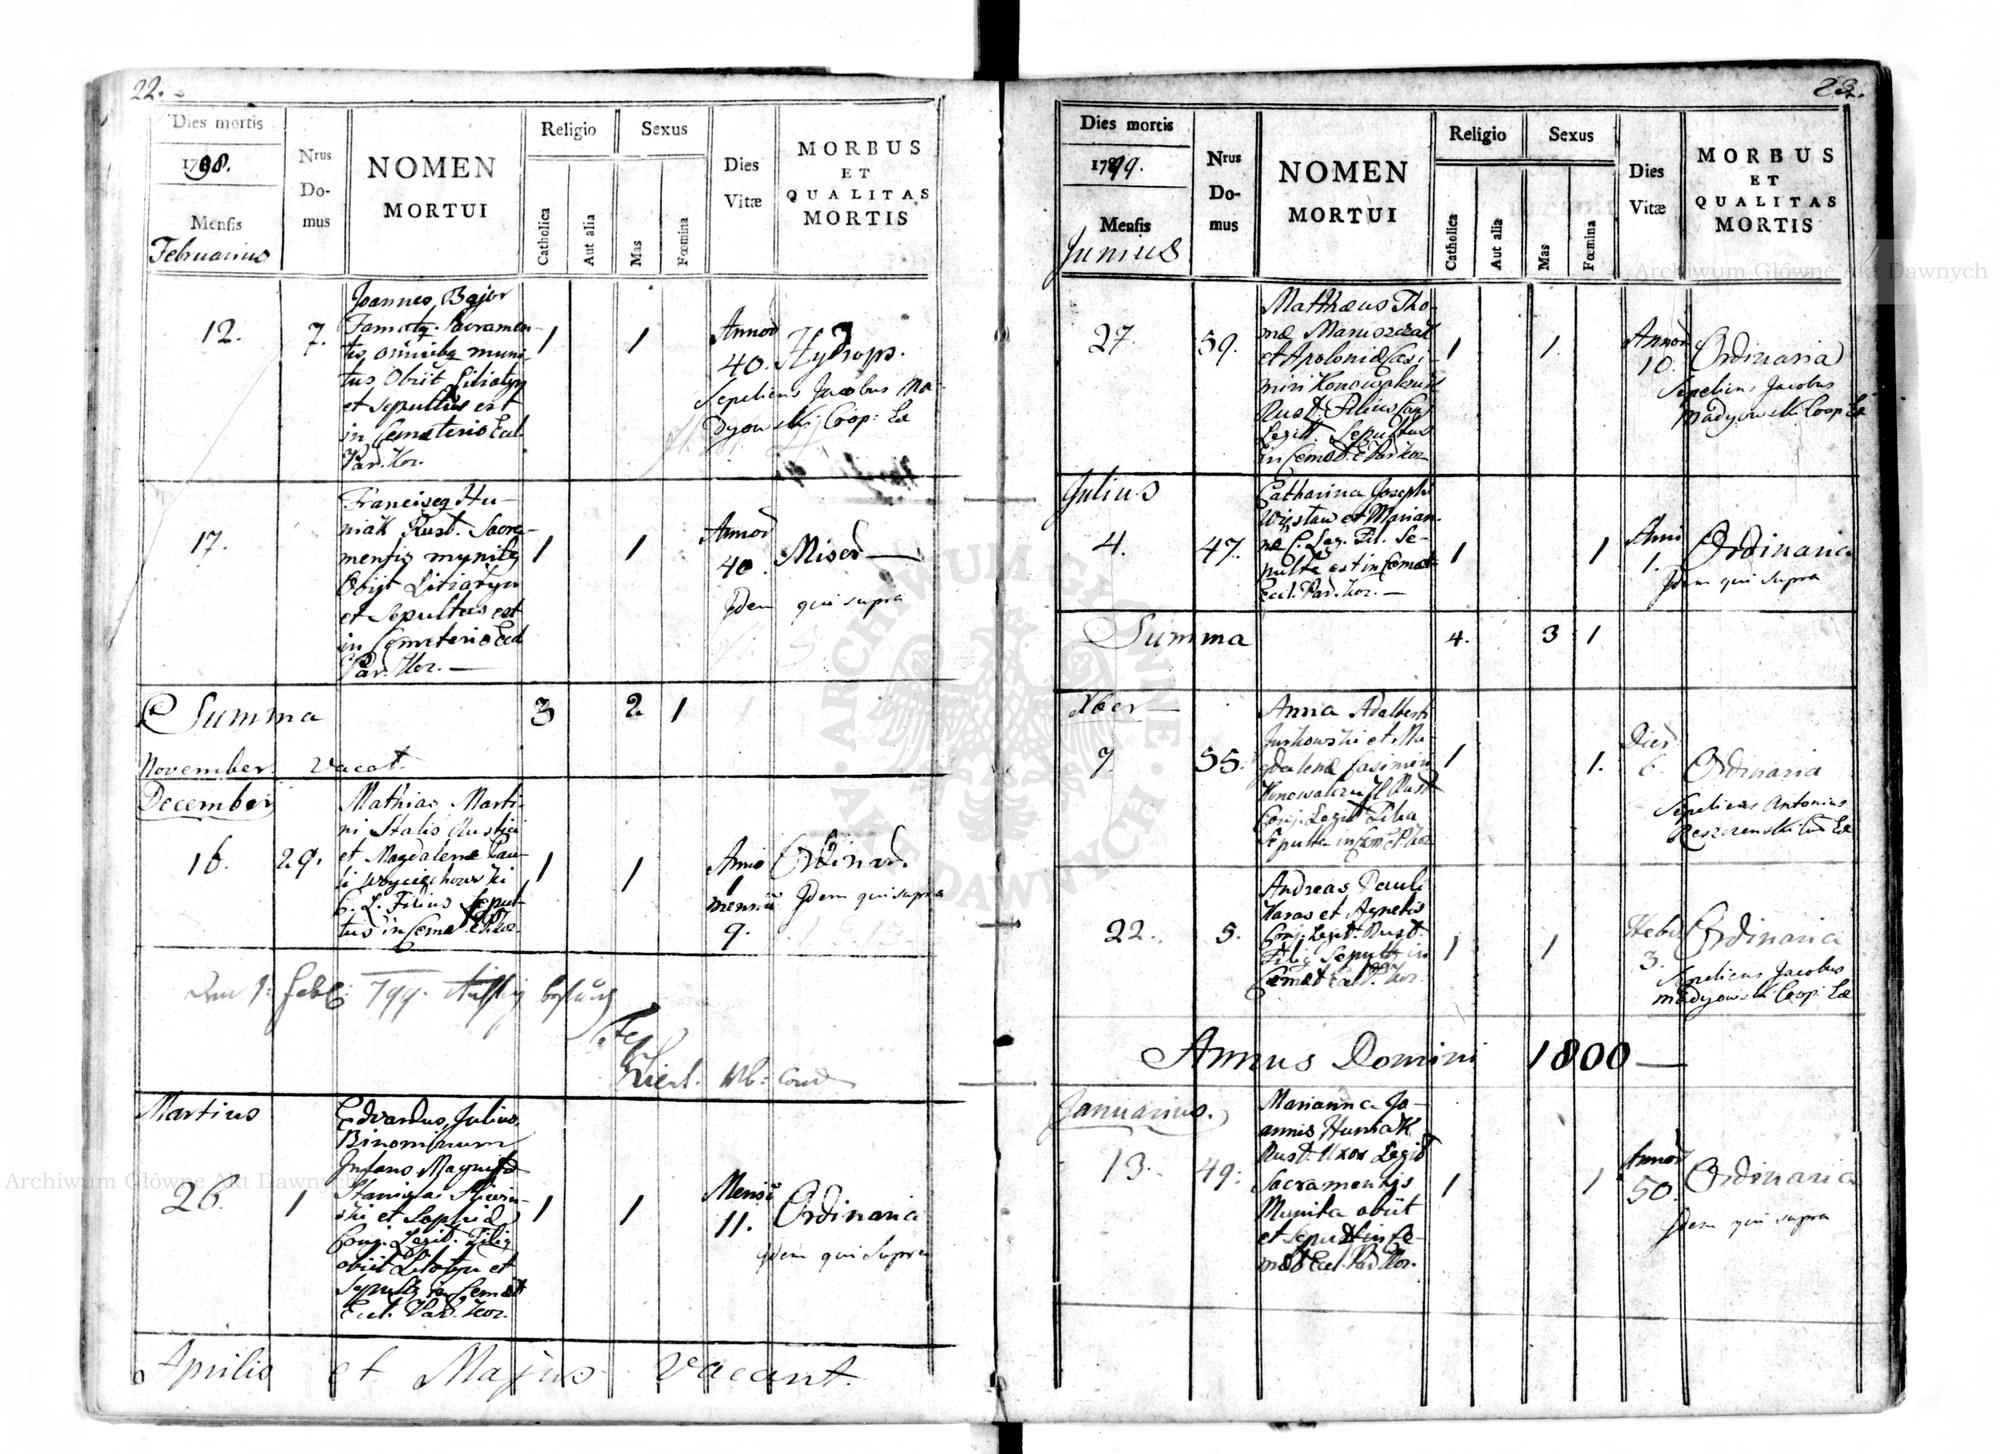 22.
Dies mortis
1798.
Mensis
Februarius
Nrus
Do-
mus
NOMEN
MORTUI
Religio
Catholica
Aut alia
Sexus
Mas
Fœmina
Dies
Vitæ
MORBUS
ET
QUALITAS
MORTIS
12.
7.
Joannes Bajor
Famatq. Sacramen-
tis omnibq muni-
tus Obiit Litiatyn
et sepultus est
in Cemeterio Eccl.
Par. Kor.
1
1
Annor
40.
Hydrops.
Sepeliens Jacobus Ma-
dyowski Coop: Læ
17.
Franciscq Hu-
niak Rust. Sacra-
mentis munitq
Obijt Litiatyn
et Sepultus est
in Cemeterio Eccl
Par. Kor.
1
1
Annor
40.
Miser
Idem qui supra
Summa
3
2
1
November vacat.
December
16.
29.
Mathias Marti-
ni Stalis Rustici
et Magdalena Pau-
li Woyciechowski
C. L. Filius Sepul-
tus in Cemet
1
1
Anno
1
mensiu
9.
Ordinar.
Idem qui supra
1: Febr: 799.
Martius
26.
1
Edvardus, Julius,
Binominum
Infans Magnif
Stanislai
ski et Sophia
Conj. Legit. Filiq
obiit Litatyn et
Sepultq in Cemet
Eccl. Par. Kor.
1
1
Mensiu
11.
Ordinaria
Idem qui Supra
Aprilis et Majus vacant.
23.
Dies mortis
1799.
Mensis
Junius
Nrus
Do-
mus
NOMEN
MORTUI
Religio
Catholica
Aut alia
Sexus
Mas
Fœmina
Dies
Vitæ
MORBUS
ET
QUALITAS
MORTIS
27.
59.
Matthæus Tho-
mæ Maruszczak
et Apolonia Casi-
miri Konowalczuk
Rust. Filius Conj
Legitt. Sepultus
in Cemet. E Par Kor
1
1.
Annor
10.
Ordinaria
Sepeliens Jacobus
Madyowski Coop Læ
Julius
4.
47.
Catharina Josephi
et Marian-
næ C. Leg. Fil. Se-
pulta est in Cemet
Eccl. Par. Kor.
1
1
Anni
1.
Ordinaria
Idem qui Supra
Summa
4.
3
1
Xber
7.
55.
Anna Adalberti
Jurkowski et Ma-
gdalenæ Casimiri
Konowalczuk Rust
Conj. Legit Filia
Sepulta in Cem E P Kor
1
1.
Dier
6.
Ordinaria
Sepeliens Antonius
22.
5.
Andreas Pauli
Haras et Agnetis
Conj. Legit. Rust.
Filiq Sepultq in
Cemet Eccl P. Kor.
1
1
Hebd
3.
Ordinaria
Sepeliens Jacobus
Madyowski Coop: Læ
Annus Domini 1800
Januarius.
13.
49:
Marianna Jo-
annis Huniak
Rust. Uxor Legit
Sacramentis
Munita obiit
et Sepult in Ce-
met Eccl. Par Kor.
1
1
Annor
50.
Ordinaria
Idem qui supra
Archiwum Główne Akt Dawnych
Archiwum Główne Akt Dawnych
ARCHIWUM GŁÓWNE AKT DAWNYCH